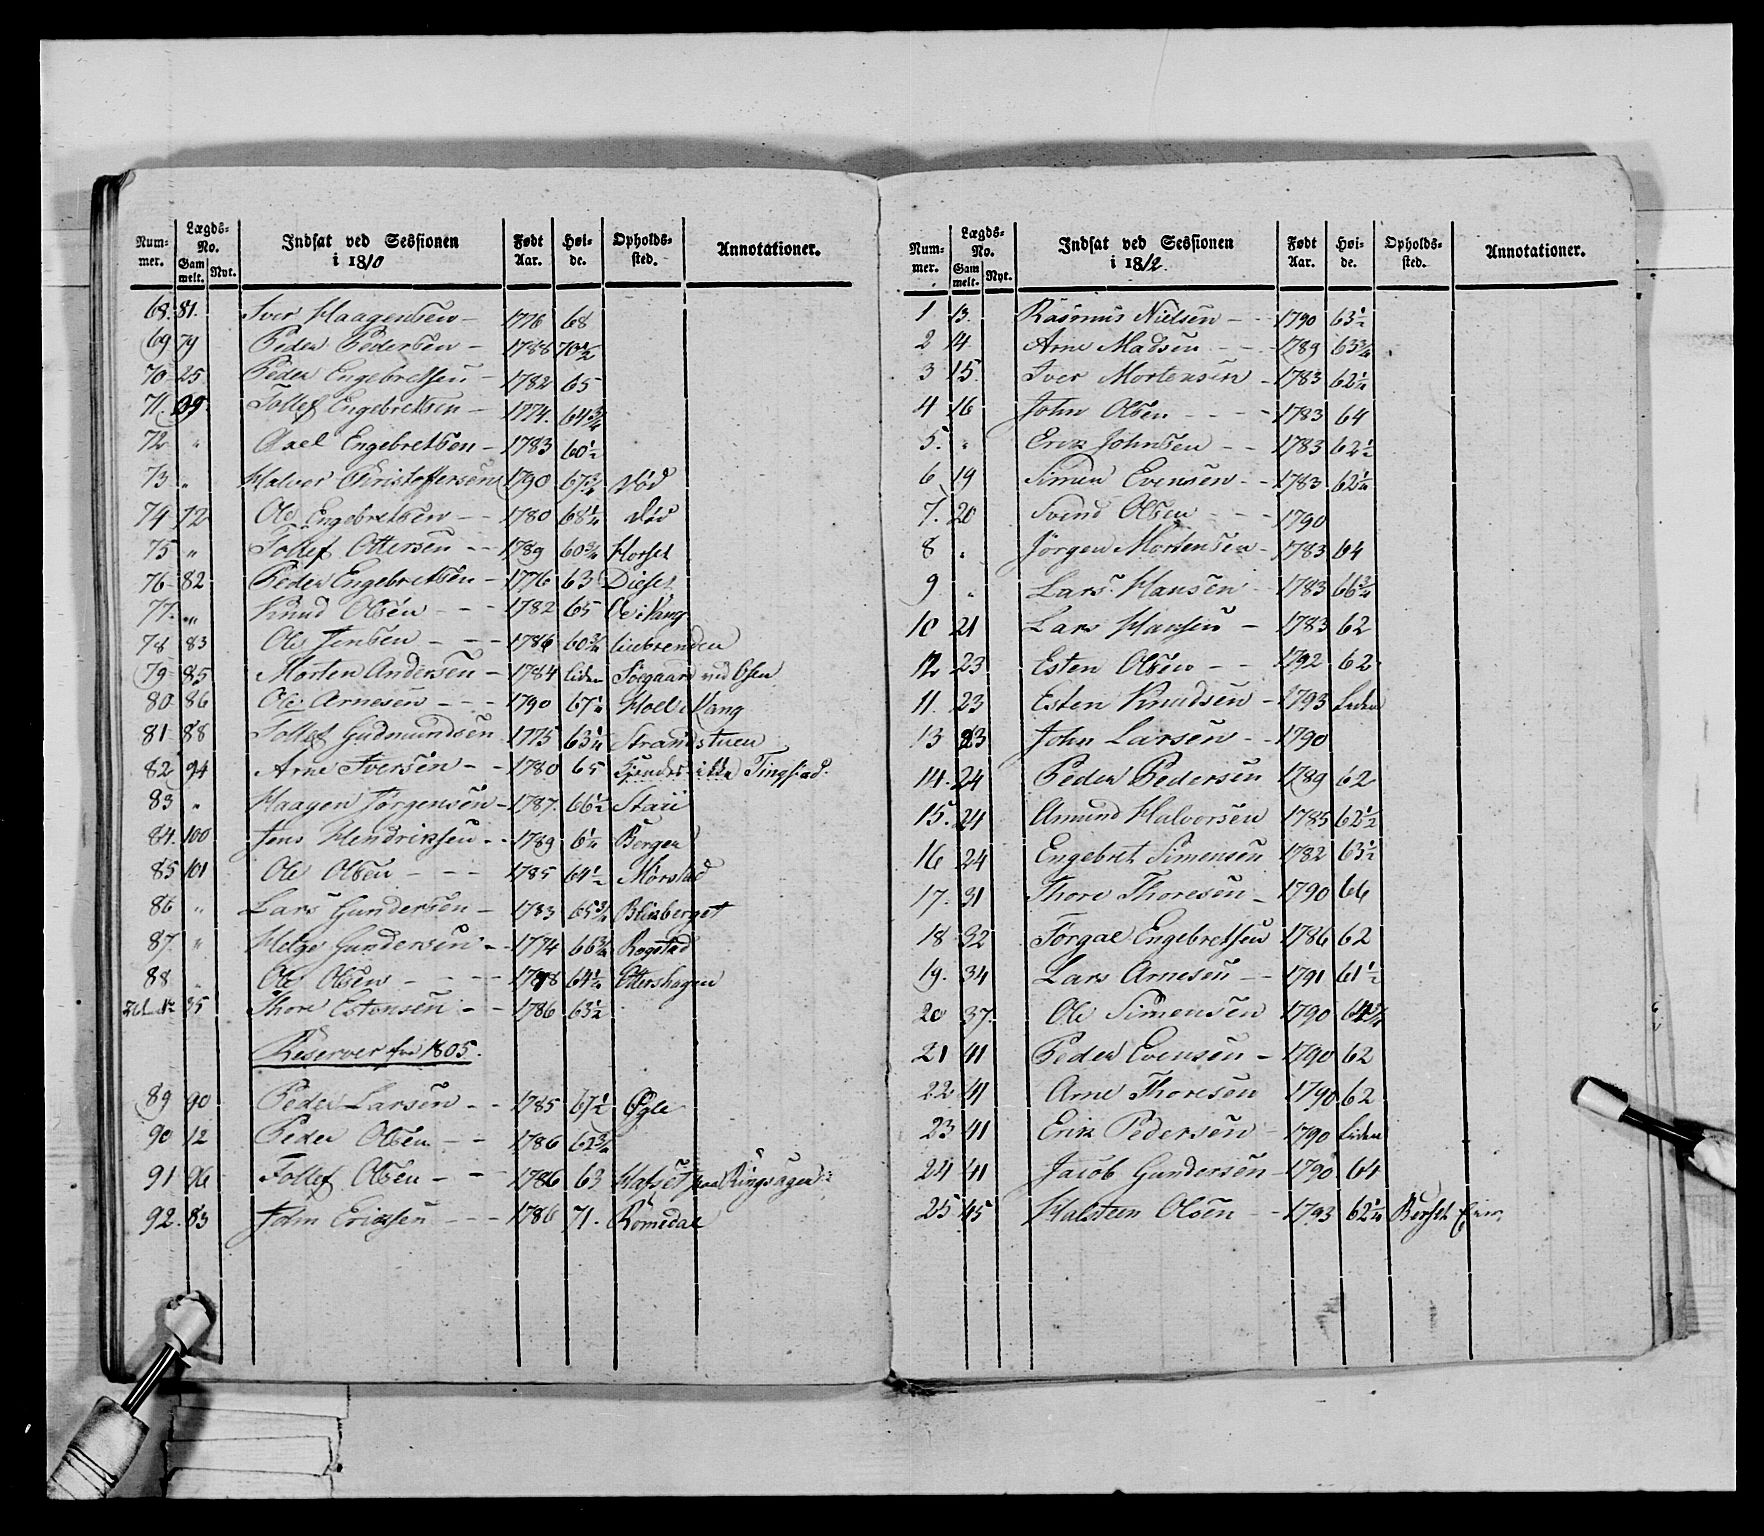 Num- Lægds- Indsat ved Sessionen Født Høi- Opholds- Annotationer.
mer. No. i 1810 Aar. de. sted.
Gam melt. Nyt.
68. 81. Iver Haagensen - 1776 68
69 79 Peder Pedersen - 1788 70 1/2
70 25 Peder Engebretsen - 1782 65
71 29 Tollef Engebretsen - 1774. 64 3/4
72 " Axel Engebretsen - 1783 60 1/2
73 " Halvor Christoffersen 1790 67 3/4 Død
74 72 Ole Engebretsen - - 1780 68 1/4 Død
75 " Tollef Ottersen - - 1789 60 3/4 Horset
76 82 Peder Engebretsen - 1776 63 Dieset
77. " Knud Olsen - - - 1782 65 Oe i Vang
78 83 Ole Jensen - - - 1786 60 3/4
79 85 Morten Andersen - 1784 liden Søigaard ved Osen
80 86 Ole Arnesen - - - 1790 67 1/4 Hoel i Vang
81 88 Tollef Gudmundsen 1775 63 1/4 Strandstuen
82 94 Arne Iversen - - 1780 65 Kjendes ikke Tingstad.
83 " Haagen Jørgensen - 1787. 66 1/2 Staii
84. 100 Jens Hendriksen - - 1789 6 1/4 Bergen
85 101 Ole Olsen - - - 1785 64 1/2 Mørstad
86 " Lars Gundersen - 1783 65 3/4 Blixberget
87. " Helge Gundersen - 1774 66 3/4 Rogstad
88 " Ole Olsen - - - - 1788 64 1/2 Ottershagen
35 Thore Estensen - - 1786 63 1/2
Reserver fra 1805.
89 90 Peder Larsen - - 1785 67 1/2 Øgle
90 12 Peder Olsen - - 1786 62 3/4
91 96 Tollef Olsen - - 1786 63 Hafset paa Ringsager
92. 83 John Eriksen - - - 1786 71. Rømedal
Num- Lægds- Indsat ved Sessionen Født Høi- Opholds- Annotationer.
mer. No. i 1812. Aar. de. sted.
Gam melt. Nyt.
1 13. Rasmus Nielsen - - 1790 63 1/2
2 14 Arne Madsen - - - 1789 63 3/4
3 15. Iver Mortensen - 1783 62 1/4
4 16 John Olsen - - - - 1783 64
5. " Erik Johnsen - - 1783 62 1/2
6 19 Simen Evensen - - 1783 62 1/4
7. 20 Svend Olsen - - - 1790
8 " Jörgen Mortensen - 1783 64
9 " Lars Hansen - 1783 66 3/4
10 21 Lars Hansen - 1783 62
12 23 Esten Olsen - - 1792 62
11. 23 Esten Knudsen - 1793 Liden
13 23 John Larsen - - 1790
14. 24 Peder Pedersen 1789 62
15. 24 Amund Halvorsen 1785 62 1/2
16 24 Engebret Simensen 1782 63 1/2
17. 31 Thore Thoresen - 1790 66
18 32 Torgal Engebretsen 1786 62
19. 34 Lars Arnesen - - 1791 61 1/2
20 37. Ole Simensen 1790 64 3/4
21 41 Peder Evensen - 1790 62
22 41 Arne Thoresen 1790 62
23 41 Erik Pedersen - 1790 Liden
24 41 Jacob Gundersen - 1790 64
25 45 Halsteen Olsen - - 1793 62 1/4 Berset